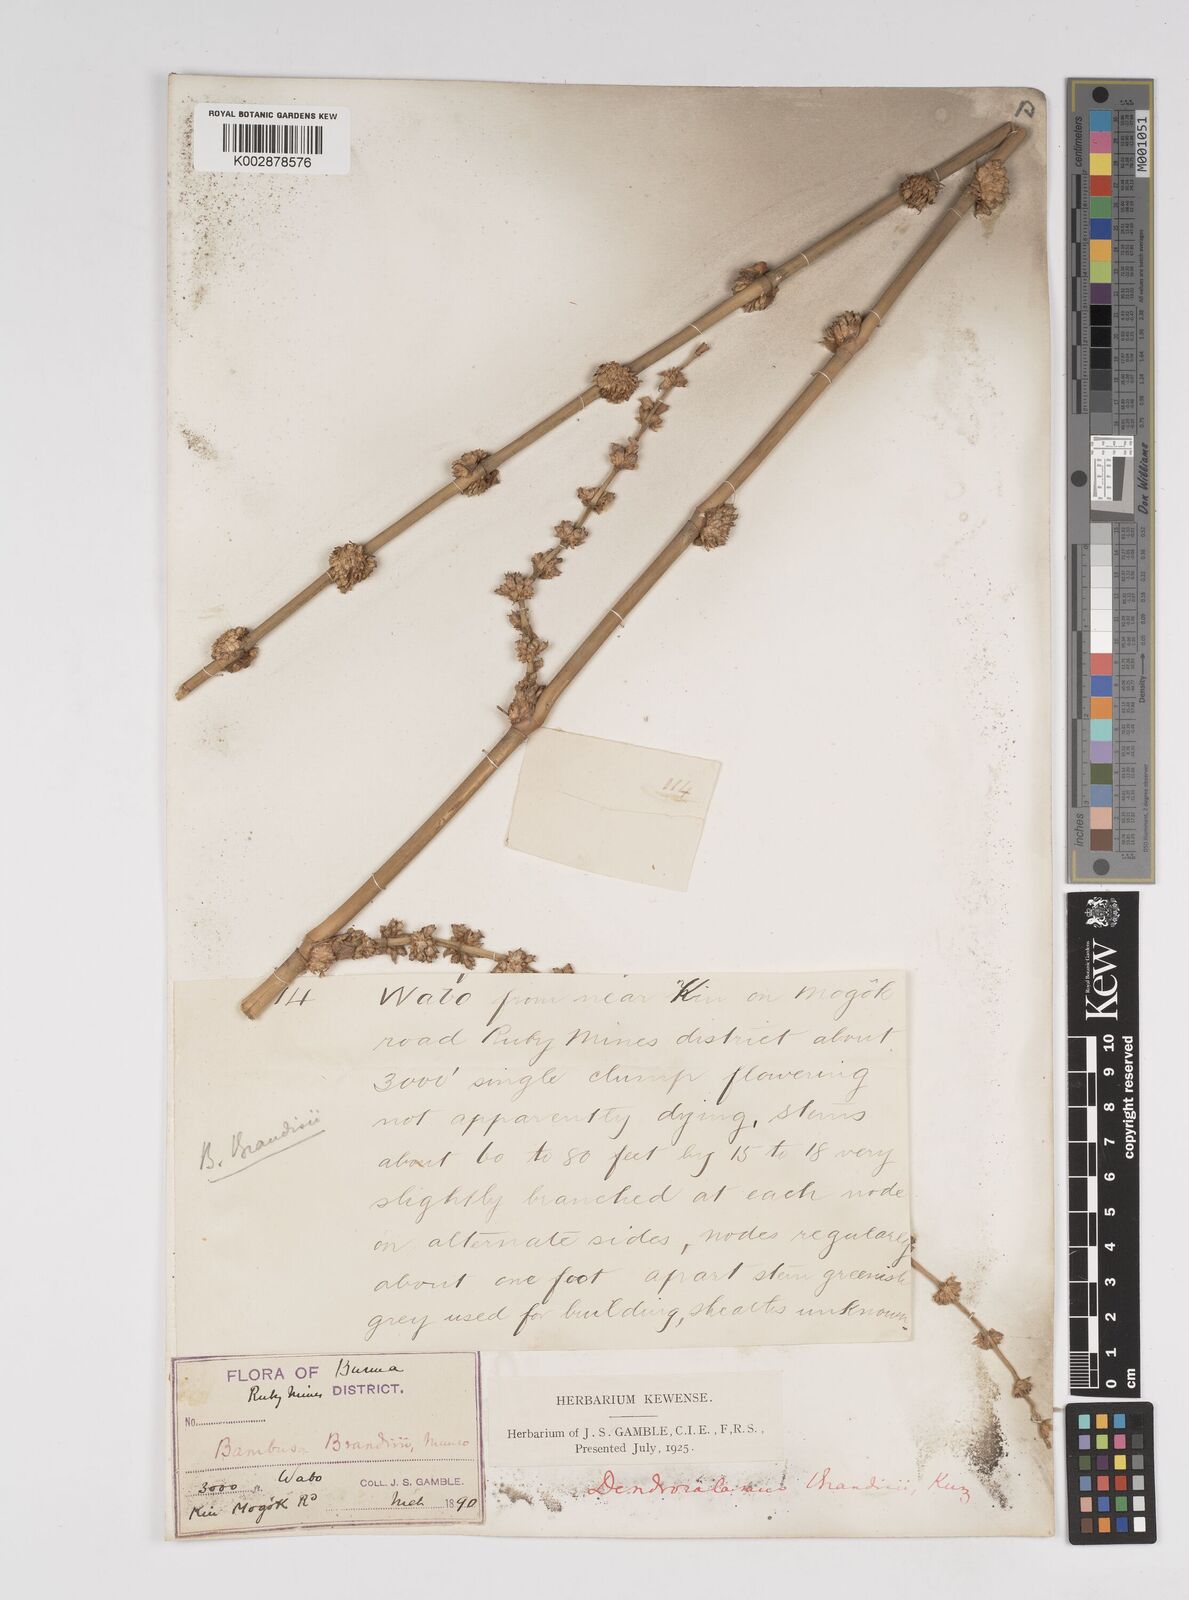 ROYAL BOTANIC GARDENS KEW
K002878576
114
14 Wabo from near Kin on Mogôk
road Ruby Mines district about
3000' single clump flowering
not apparently dying, stems
about 60 to 80 feet by 15 to 18 very
slightly branched at each node
on alternate sides, nodes regularly
about one foot apart stem greenish
grey used for building, sheaths unknown.
B. Brandisii
FLORA OF Burma
Ruby Mines DISTRICT.
No.
Bambusa Brandisii, Munro
Wabo
3000 ft. COLL. J. S. GAMBLE.
Kin Mogôk Rd 1890
HERBARIUM KEWENSE.
Herbarium of J. S. GAMBLE, C.I.E., F.R.S.,
Presented July, 1925.
Dendrocalamus Brandisii, Kurz
centimetres
M001051
Don Williams
Density
inches
Royal Botanic Gardens
Kew
0 1 2 3 4 5 6 7 8 9 10
cm
copyright reserved